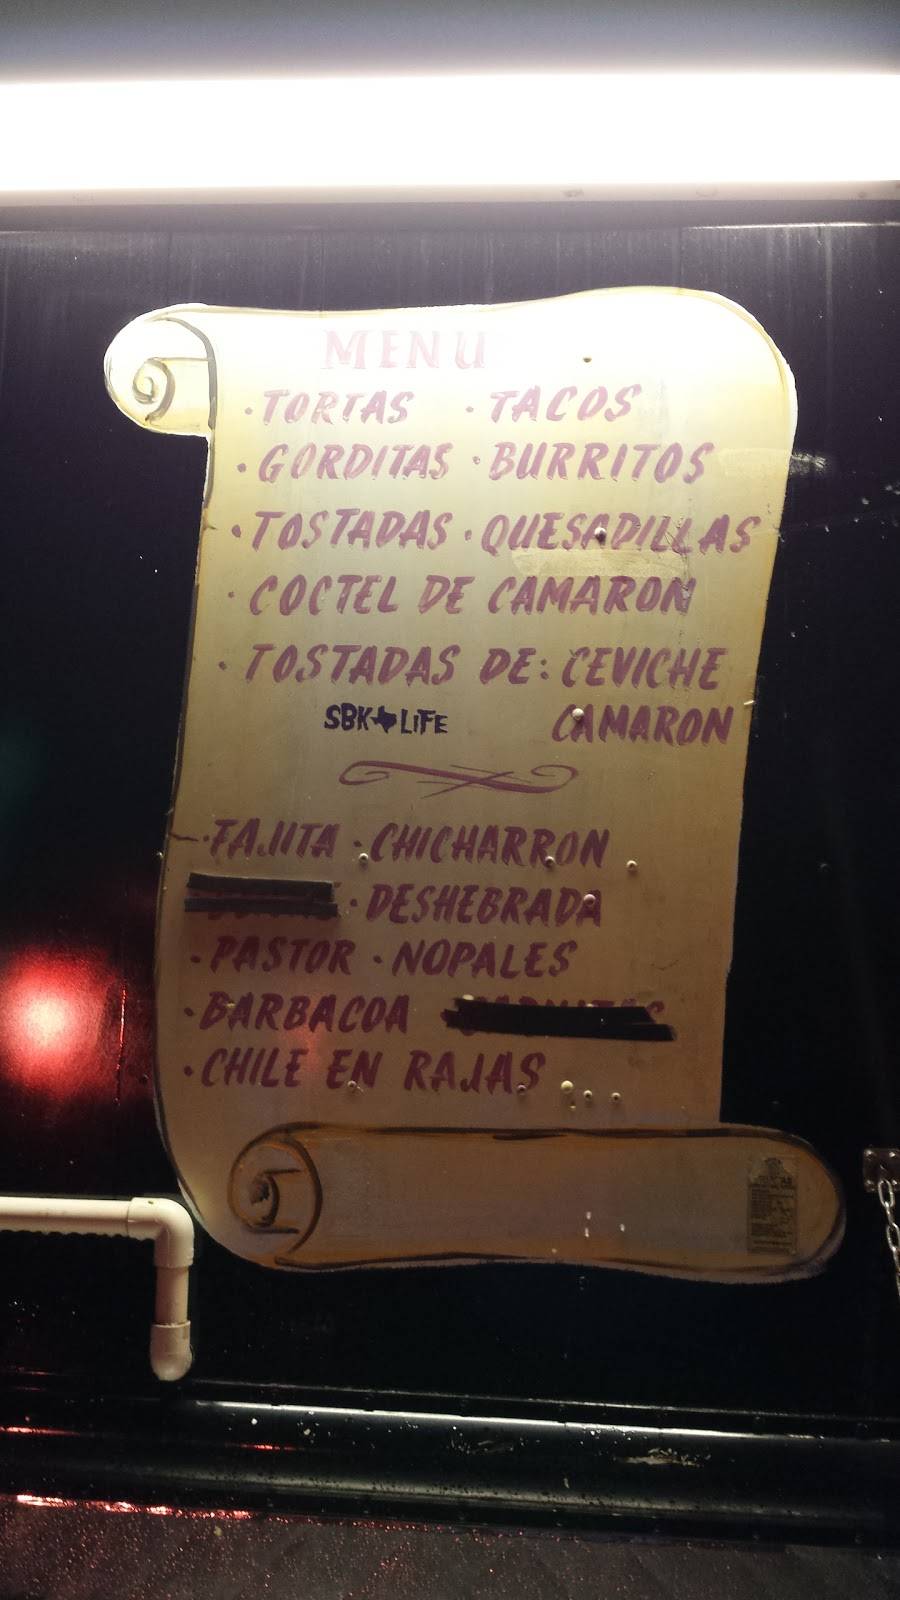 MENU
· TORTAS · TACOS
· GORDITAS · BURRITOS
· TOSTADAS · QUESADILLAS
· COCTEL DE CAMARON
· TOSTADAS DE: CEVICHE
SBK LIFE CAMARON
· FAJITA · CHICHARRON
· DESHEBRADA
· PASTOR · NOPALES
· BARBACOA
· CHILE EN RAJAS